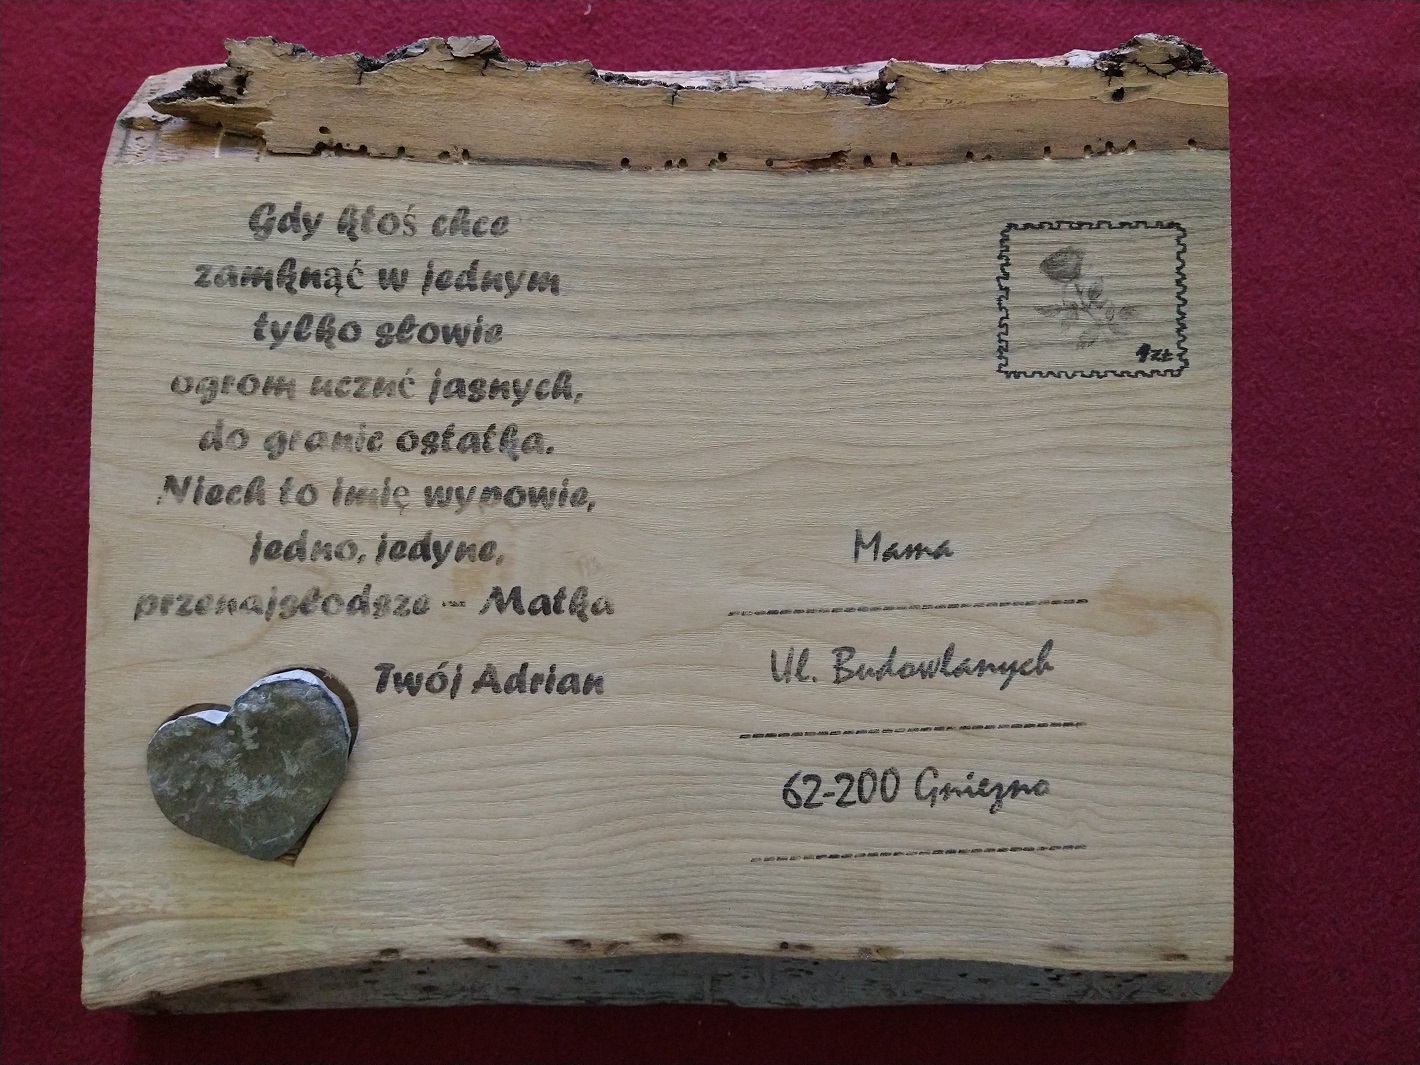 Gdy ktoś chce
zamknąć w jednym
tylko słowie
ogrom uczuć jasnych,
do granic ostatka.
Niech to imię wypowie,
jedno, jedyne,
przenajsłodsze - Matka
Twój Adrian
1 ZŁ
Mama
Ul. Budowlanych
62-200 Gniezno